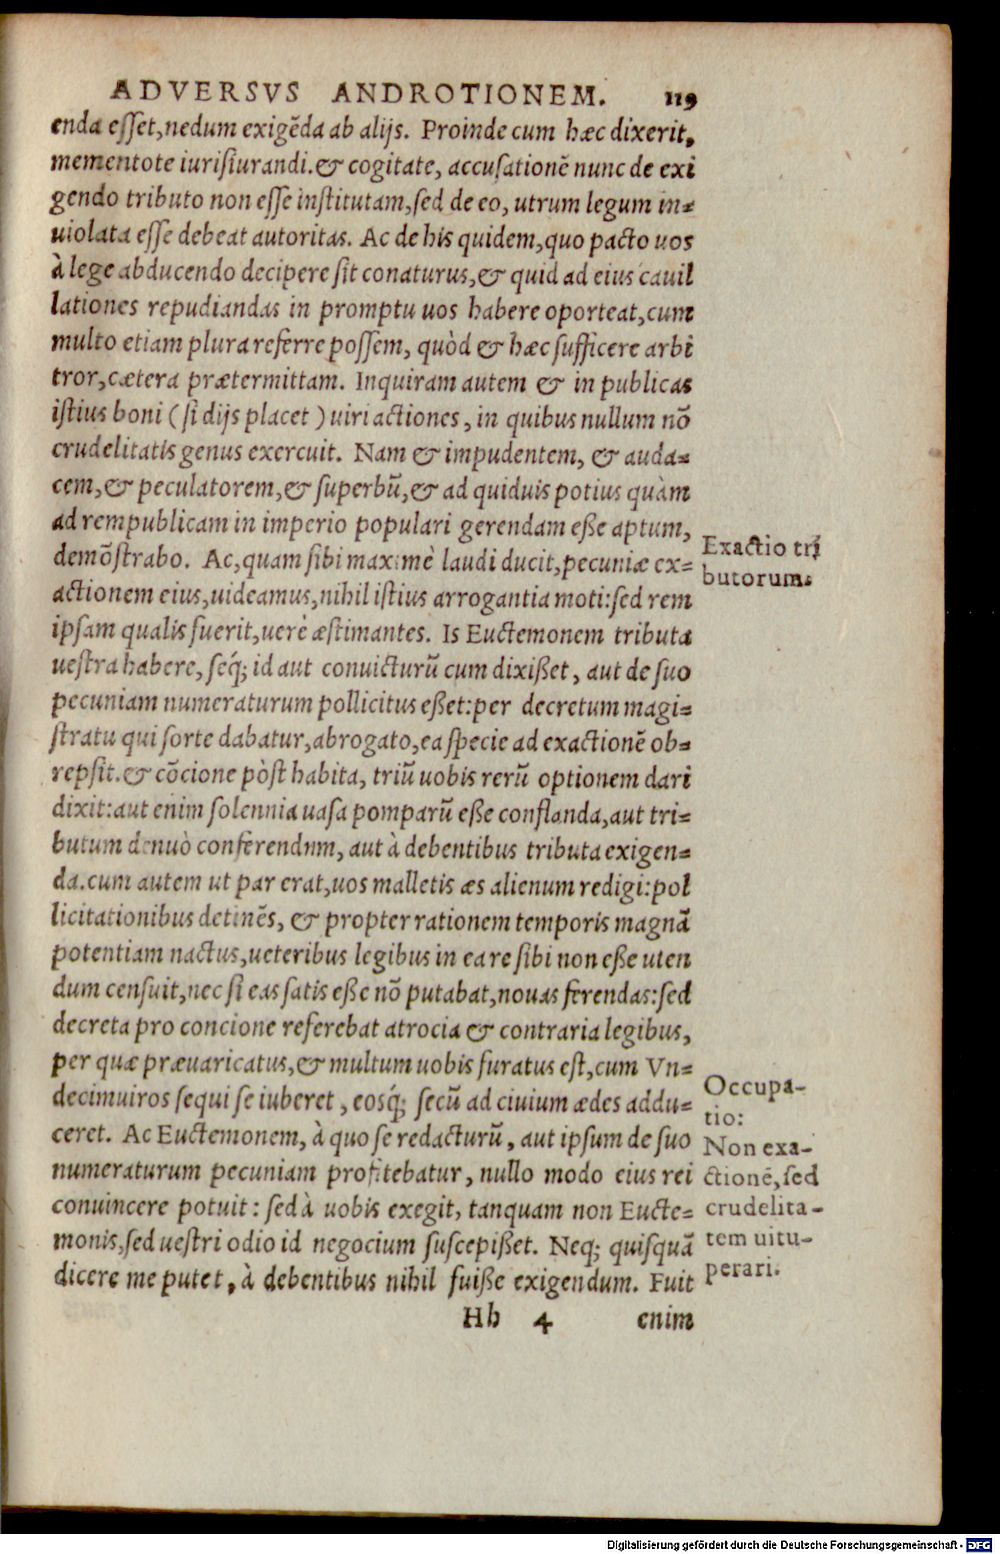 ADVERSVS ANDROTIONEM. 119
enda esset, nedum exigēda ab alijs. Proinde cum hæc dixerit,
mementote iurisiurandi. & cogitate, accusationē nunc de exi
gendo tributo non esse institutam, sed de eo, utrum legum in=
uiolata esse debeat autoritas. Ac de his quidem, quo pacto uos
à lege abducendo decipere sit conaturus, & quid ad eius cauil
lationes repudiandas in promptu uos habere oporteat, cum
multo etiam plura referre possem, quòd & hæc sufficere arbi
tror, cætera prætermittam. Inquiram autem & in publicas
istius boni (si dijs placet) uiri actiones, in quibus nullum nō
crudelitatis genus exercuit. Nam & impudentem, & auda=
cem, & peculatorem, & superbū, & ad quiduis potius quàm
ad rempublicam in imperio populari gerendam eße aptum,
demōstrabo. Ac, quam sibi maximè laudi ducit, pecuniæ ex=
actionem eius, uideamus, nihil istius arrogantia moti: sed rem
ipsam qualis fuerit, uerè æstimantes. Is Euctemonem tributa
uestra habere, seq́; id aut conuicturū cum dixißet, aut de suo
pecuniam numeraturum pollicitus eßet: per decretum magi=
stratu qui sorte dabatur, abrogato, ea specie ad exactionē ob=
repsit. & cōcione pòst habita, triū uobis rerū optionem dari
dixit: aut enim solennia uasa pomparū eße conflanda, aut tri=
butum denuò conferendum, aut à debentibus tributa exigen=
da. cum autem ut par erat, uos malletis æs alienum redigi: pol
licitationibus detinēs, & propter rationem temporis magnā
potentiam nactus, ueteribus legibus in ea re sibi non eße uten
dum censuit, nec si eas satis eße nō putabat, nouas ferendas: sed
decreta pro concione referebat atrocia & contraria legibus,
per quæ præuaricatus, & multum uobis furatus est, cum Vn=
decimuiros sequi se iuberet, eosq́; secū ad ciuium ædes addu=
ceret. Ac Euctemonem, à quo se redacturū, aut ipsum de suo
numeraturum pecuniam profitebatur, nullo modo eius rei
conuincere potuit: sed à uobis exegit, tanquam non Eucte=
monis, sed uestri odio id negocium suscepißet. Neq; quisquā
dicere me putet, à debentibus nihil fuiße exigendum. Fuit
Hh 4 enim
Exactio tri
butorum.
Occupa-
tio:
Non exa-
ctionē, sed
crudelita-
tem uitu-
perari.
Digitalisierung gefördert durch die Deutsche Forschungsgemeinschaft - DFG